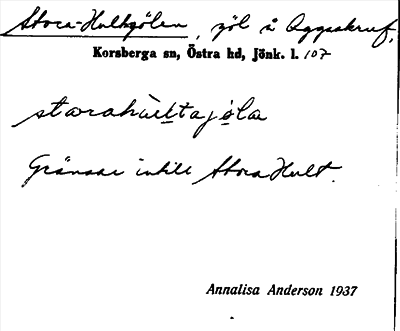 Stora-Hultgölen, göl å Aggaskruf,
Korsberga sn, Östra hd, Jönk. l. 107
storahultajöla
Gränsar intill Stora Hult.
Annalisa Anderson 1937